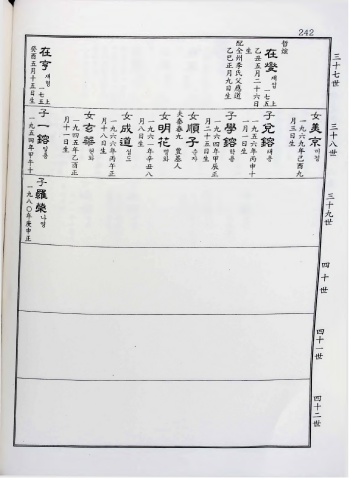 242
三十七世
三十八世
三十九世
四十世
四十一世
四十二世
哲鎔
在燮 재섭 一七五上
乙丑五月二十六日
生
配全州李氏父應道
乙巳正月九日生
在亨 재형 一七五上
癸酉五月十五日生
女美京 미경
一九六九年己酉九
月三日生
子兌鎔 태용
一九五六年丙申十
一月一日生
子學鎔 학용
一九六四年甲辰正
月二十五日生
女順子 순자
夫秦春九 豊基人
女明花 명화
一九六一年辛丑八
月八日生
女成道 성도
一九六六年丙午正
月十一日生
女玄華 현화
一九四五年乙酉正
月十一日生
子一鎔 일용
一九五四年甲午十
子羅榮 나영
一九八〇年庚申正